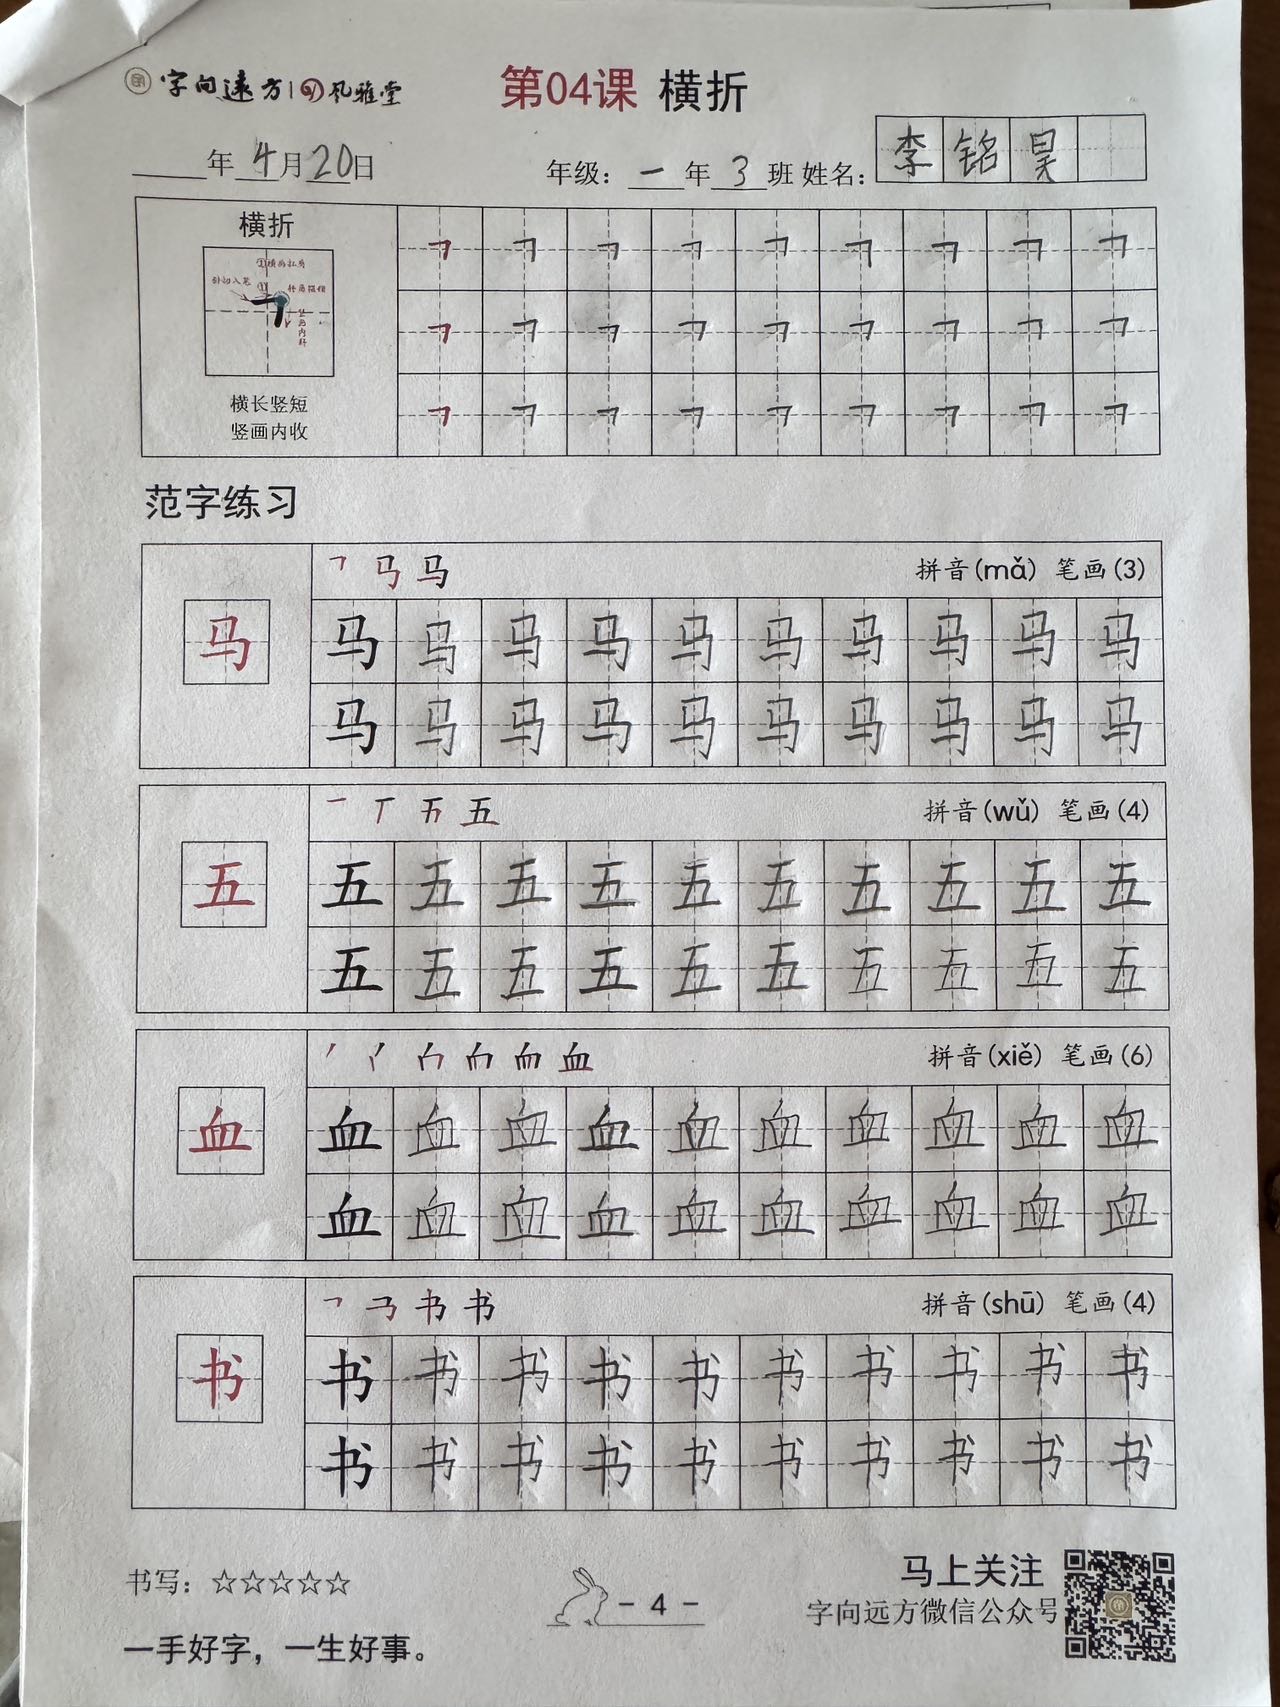 字向远方 风雅堂 第04课 横折
年 4月20日 年级：一年3班 姓名：李铭昊
横折
②横画扛肩
斜切入笔 ① 转角顿挫
竖画内斜
横长竖短
竖画内收
𠃍 𠃍 𠃍 𠃍 𠃍 𠃍 𠃍 𠃍 𠃍
𠃍 𠃍 𠃍 𠃍 𠃍 𠃍 𠃍 𠃍 𠃍
𠃍 𠃍 𠃍 𠃍 𠃍 𠃍 𠃍 𠃍 𠃍
范字练习
拼音(mǎ) 笔画(3)
马
马 马 马 马 马 马 马 马 马 马
马 马 马 马 马 马 马 马 马 马
拼音(wǔ) 笔画(4)
五
五 五 五 五 五 五 五 五 五 五
五 五 五 五 五 五 五 五 五 五
拼音(xiě) 笔画(6)
血
血 血 血 血 血 血 血 血 血 血
血 血 血 血 血 血 血 血 血 血
拼音(shū) 笔画(4)
书
书 书 书 书 书 书 书 书 书 书
书 书 书 书 书 书 书 书 书 书
书写：☆☆☆☆☆
- 4 -
马上关注
字向远方微信公众号
一手好字，一生好事。